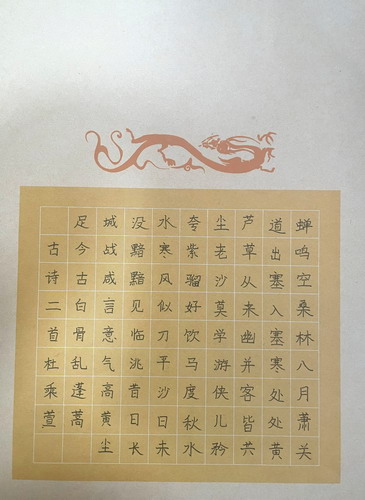 蝉鸣空桑林八月萧关
道出塞入塞寒处处黄
芦草从来幽并客皆共
尘老沙莫学游侠儿矜
夸紫骝好饮马度秋水
水寒风似刀平沙日未
没黯黯见临洮昔日长
城战咸言意气高黄尘
足今古白骨乱蓬蒿
古诗二首杜乘萱